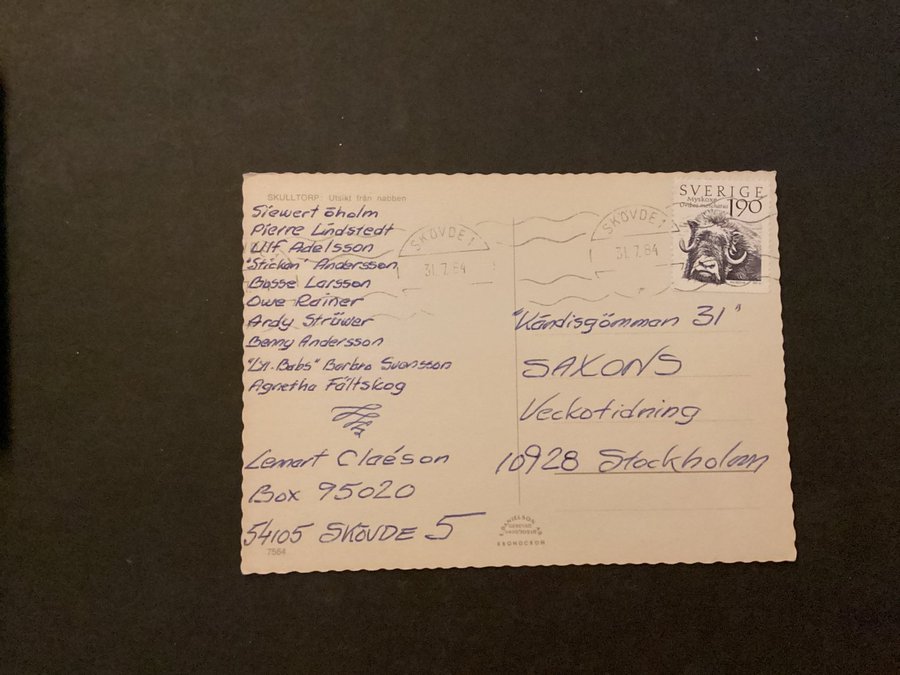 SKULLTORP: Utsikt från nabben
Siewert öholm
Pierre Lindstedt
Ulf Adelsson
"Stickan" Andersson
Bosse Larsson
Owe Rainer
Ardy Strüwer
Benny Andersson
"Lill-Babs" Barbro Svensson
Agnetha Fältskog
Lennart Claéson
Box 95020
54105 SKÖVDE 5
7564
SKÖVDE 1
31.7.84
SKÖVDE 1
31.7.84
SVERIGE
Myskoxe
Ovibos moschatus
190
"Kändisgömman 31"
SAXONS
Veckotidning
10928 Stockholm
A. DANIELSON
KRONOCROM